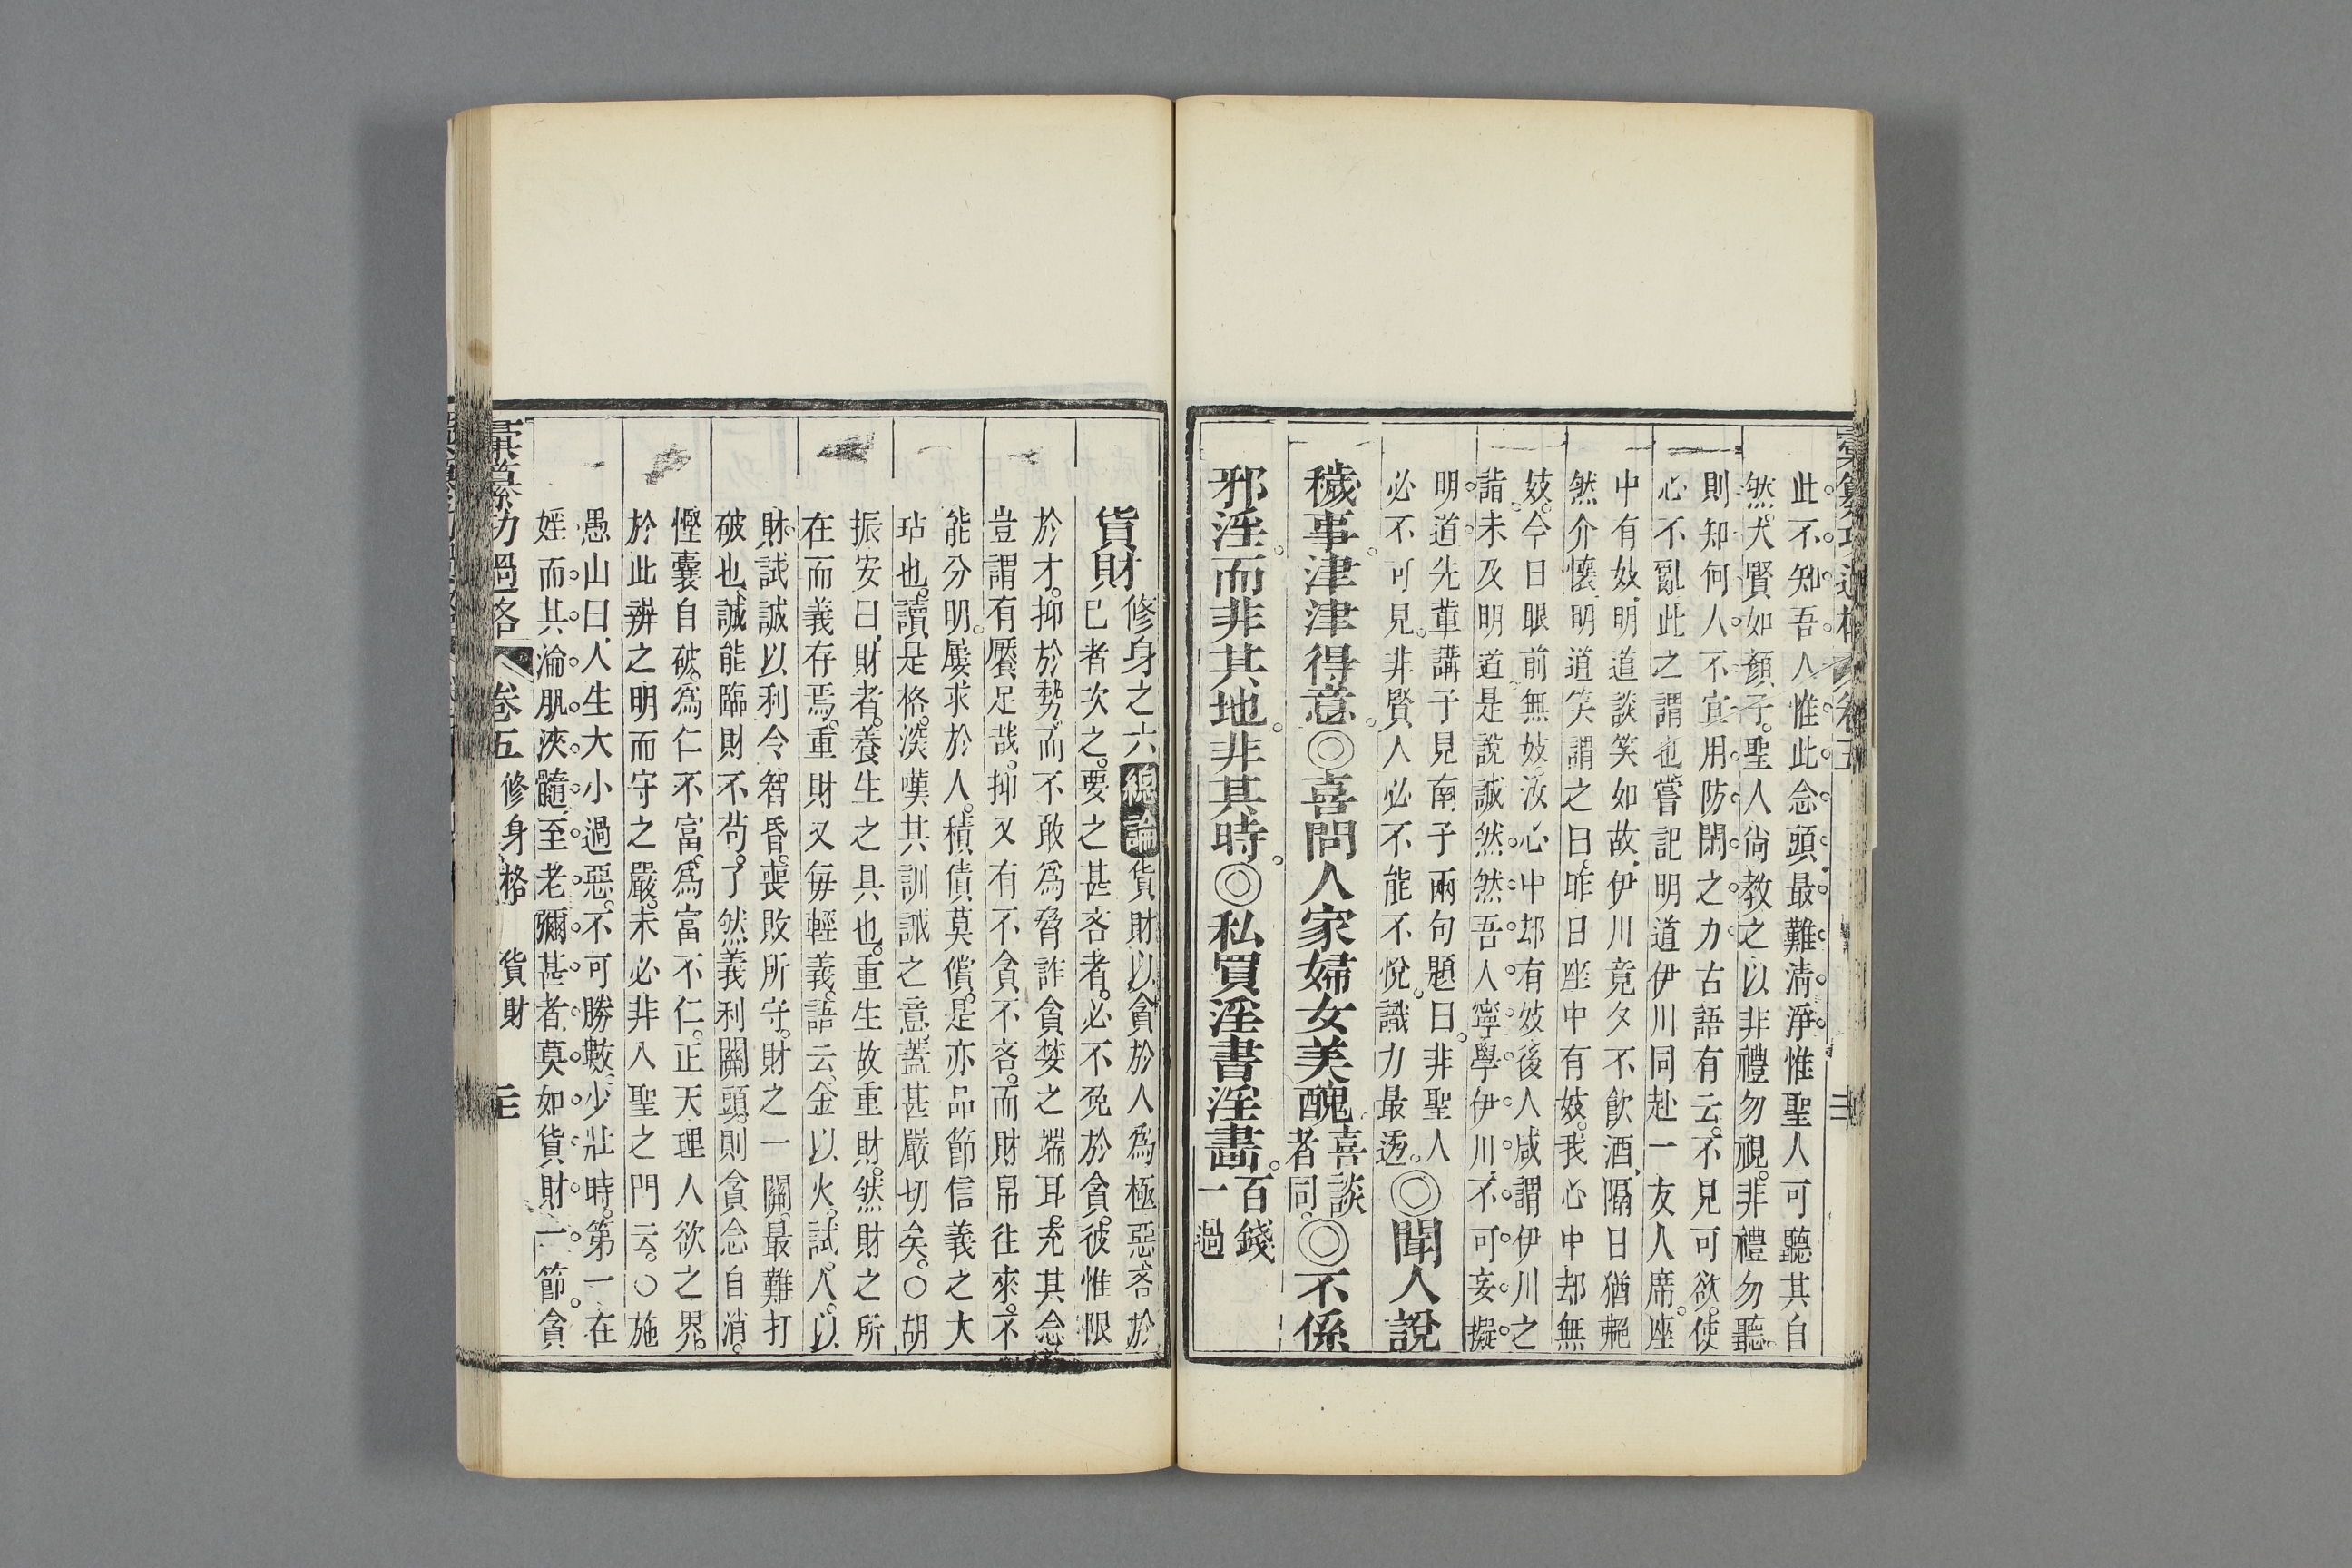 此不知吾人惟此念頭最難清淨惟聖人可聽其自
然大賢如顏子聖人尚教之以非禮勿視非禮勿聽
則知何人不宜用防閑之力古語有云不見可欲使
心不亂此之謂也嘗記明道伊川同赴一友人席座
中有妓明道談笑如故伊川竟夕不飲酒隔日猶艴
然介懷明道笑謂之曰昨日座中有妓我心中却無
妓今日眼前無妓汝心中却有妓後人咸謂伊川之
詣未及明道是說誠然然吾人寧學伊川不可妄擬
明道先輩講子見南子兩句題曰非聖人
必不可見非賢人必不能不悅識力最透◎聞人說
穢事津津得意◎喜問人家婦女美醜喜談者同◎不係
邪淫而非其地非其時◎私買淫書淫畵百錢一過
貨財修身之六總論貨財以貪於人爲極惡吝於
己者次之要之甚吝者必不免於貪彼惟限
於才抑於勢而不敢爲脅詐貪婪之端耳充其念
豈謂有饜足哉抑又有不貪不吝而財帛往來不
能分明屢求於人積債莫償是亦品節信義之大
玷也讀是格深嘆其訓誡之意蓋甚嚴切矣○胡
振安曰財者養生之具也重生故重財然財之所
在而義存焉重財又每輕義語云金以火試人以
財試誠以利令智昏喪敗所守財之一關最難打
破也誠能臨財不苟了然義利關頭則貪念自消
慳囊自破爲仁不富爲富不仁正天理人欲之界
於此辨之明而守之嚴未必非入聖之門云○施
愚山曰人生大小過惡不可勝數少壯時第一在
婬而其淪肌浹髓至老彌甚者莫如貨財一節貪
彙纂功過格 卷五 修身格 貨財 二十